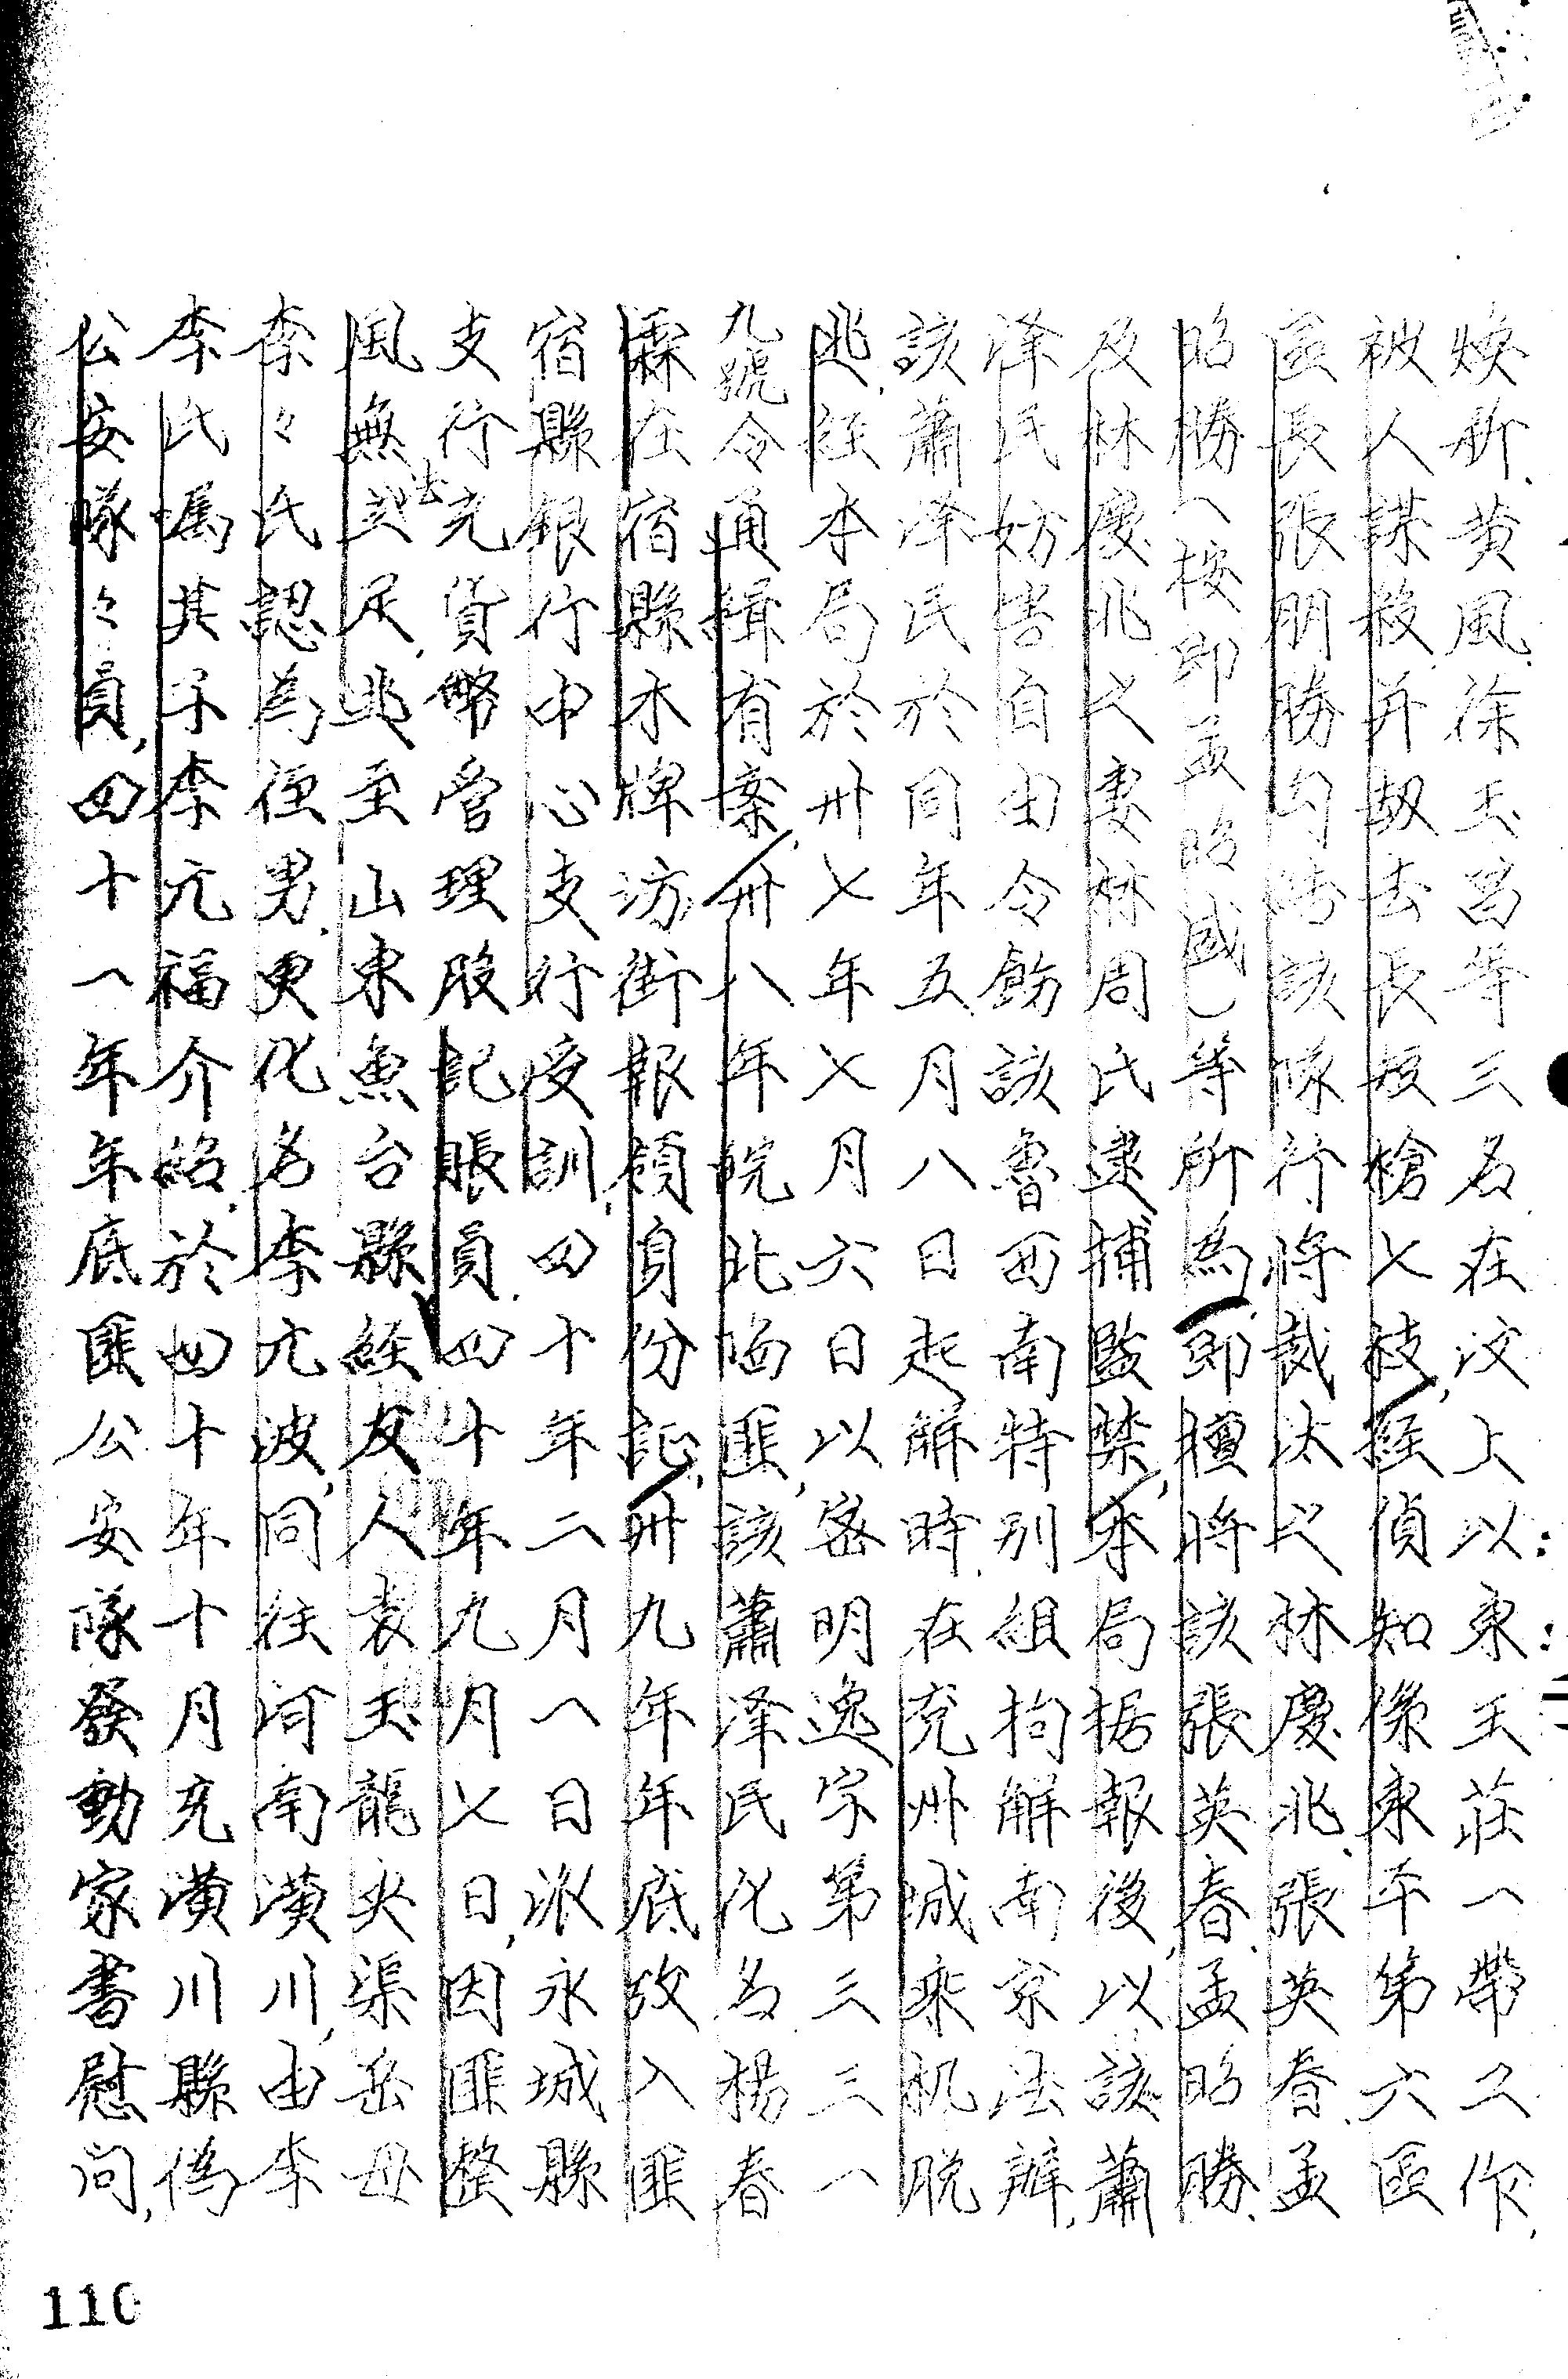 煥斯、黃風、徐玉昌等三名在汶上以東王莊一帶工作、
被人謀殺、并劫去長短槍七枝、經偵知係東平第六區
區長張朋勝勾結該隊行將裁汰之林慶北、張英春、孟
昭勝（按即孟昭盛）等所為、即擅將該張英春、孟昭勝、
及林慶北之妻林周氏逮捕監禁、本局据報後、以該蕭
泽民妨害自由令飭該魯西南特別組拘解南京法辦、
該蕭泽民於同年五月八日起解時、在兗州城乘机脱
逃、經本局於卅七年七月六日以密明逸字第三三一
九號令通緝有案、卅八年皖北淪匪、該蕭泽民化名楊春
霖在宿縣木牌坊街報領身份証、卅九年年底攷入匪
宿縣銀行中心支行受訓、四十年二月一日派永城縣
支行充貨幣管理股記賬員、四十年九月七日、因匪整
風無法立足、逃至山東魚台縣經友人袁玉龍夾渠岳母
李々氏認為徑男、更化名李亢波、同往河南潢川、由李
李氏嘱其子李亢福介紹、於四十年十月充潢川縣偽
公安隊々員、四十一年年底匪公安隊發動家書慰問、
110